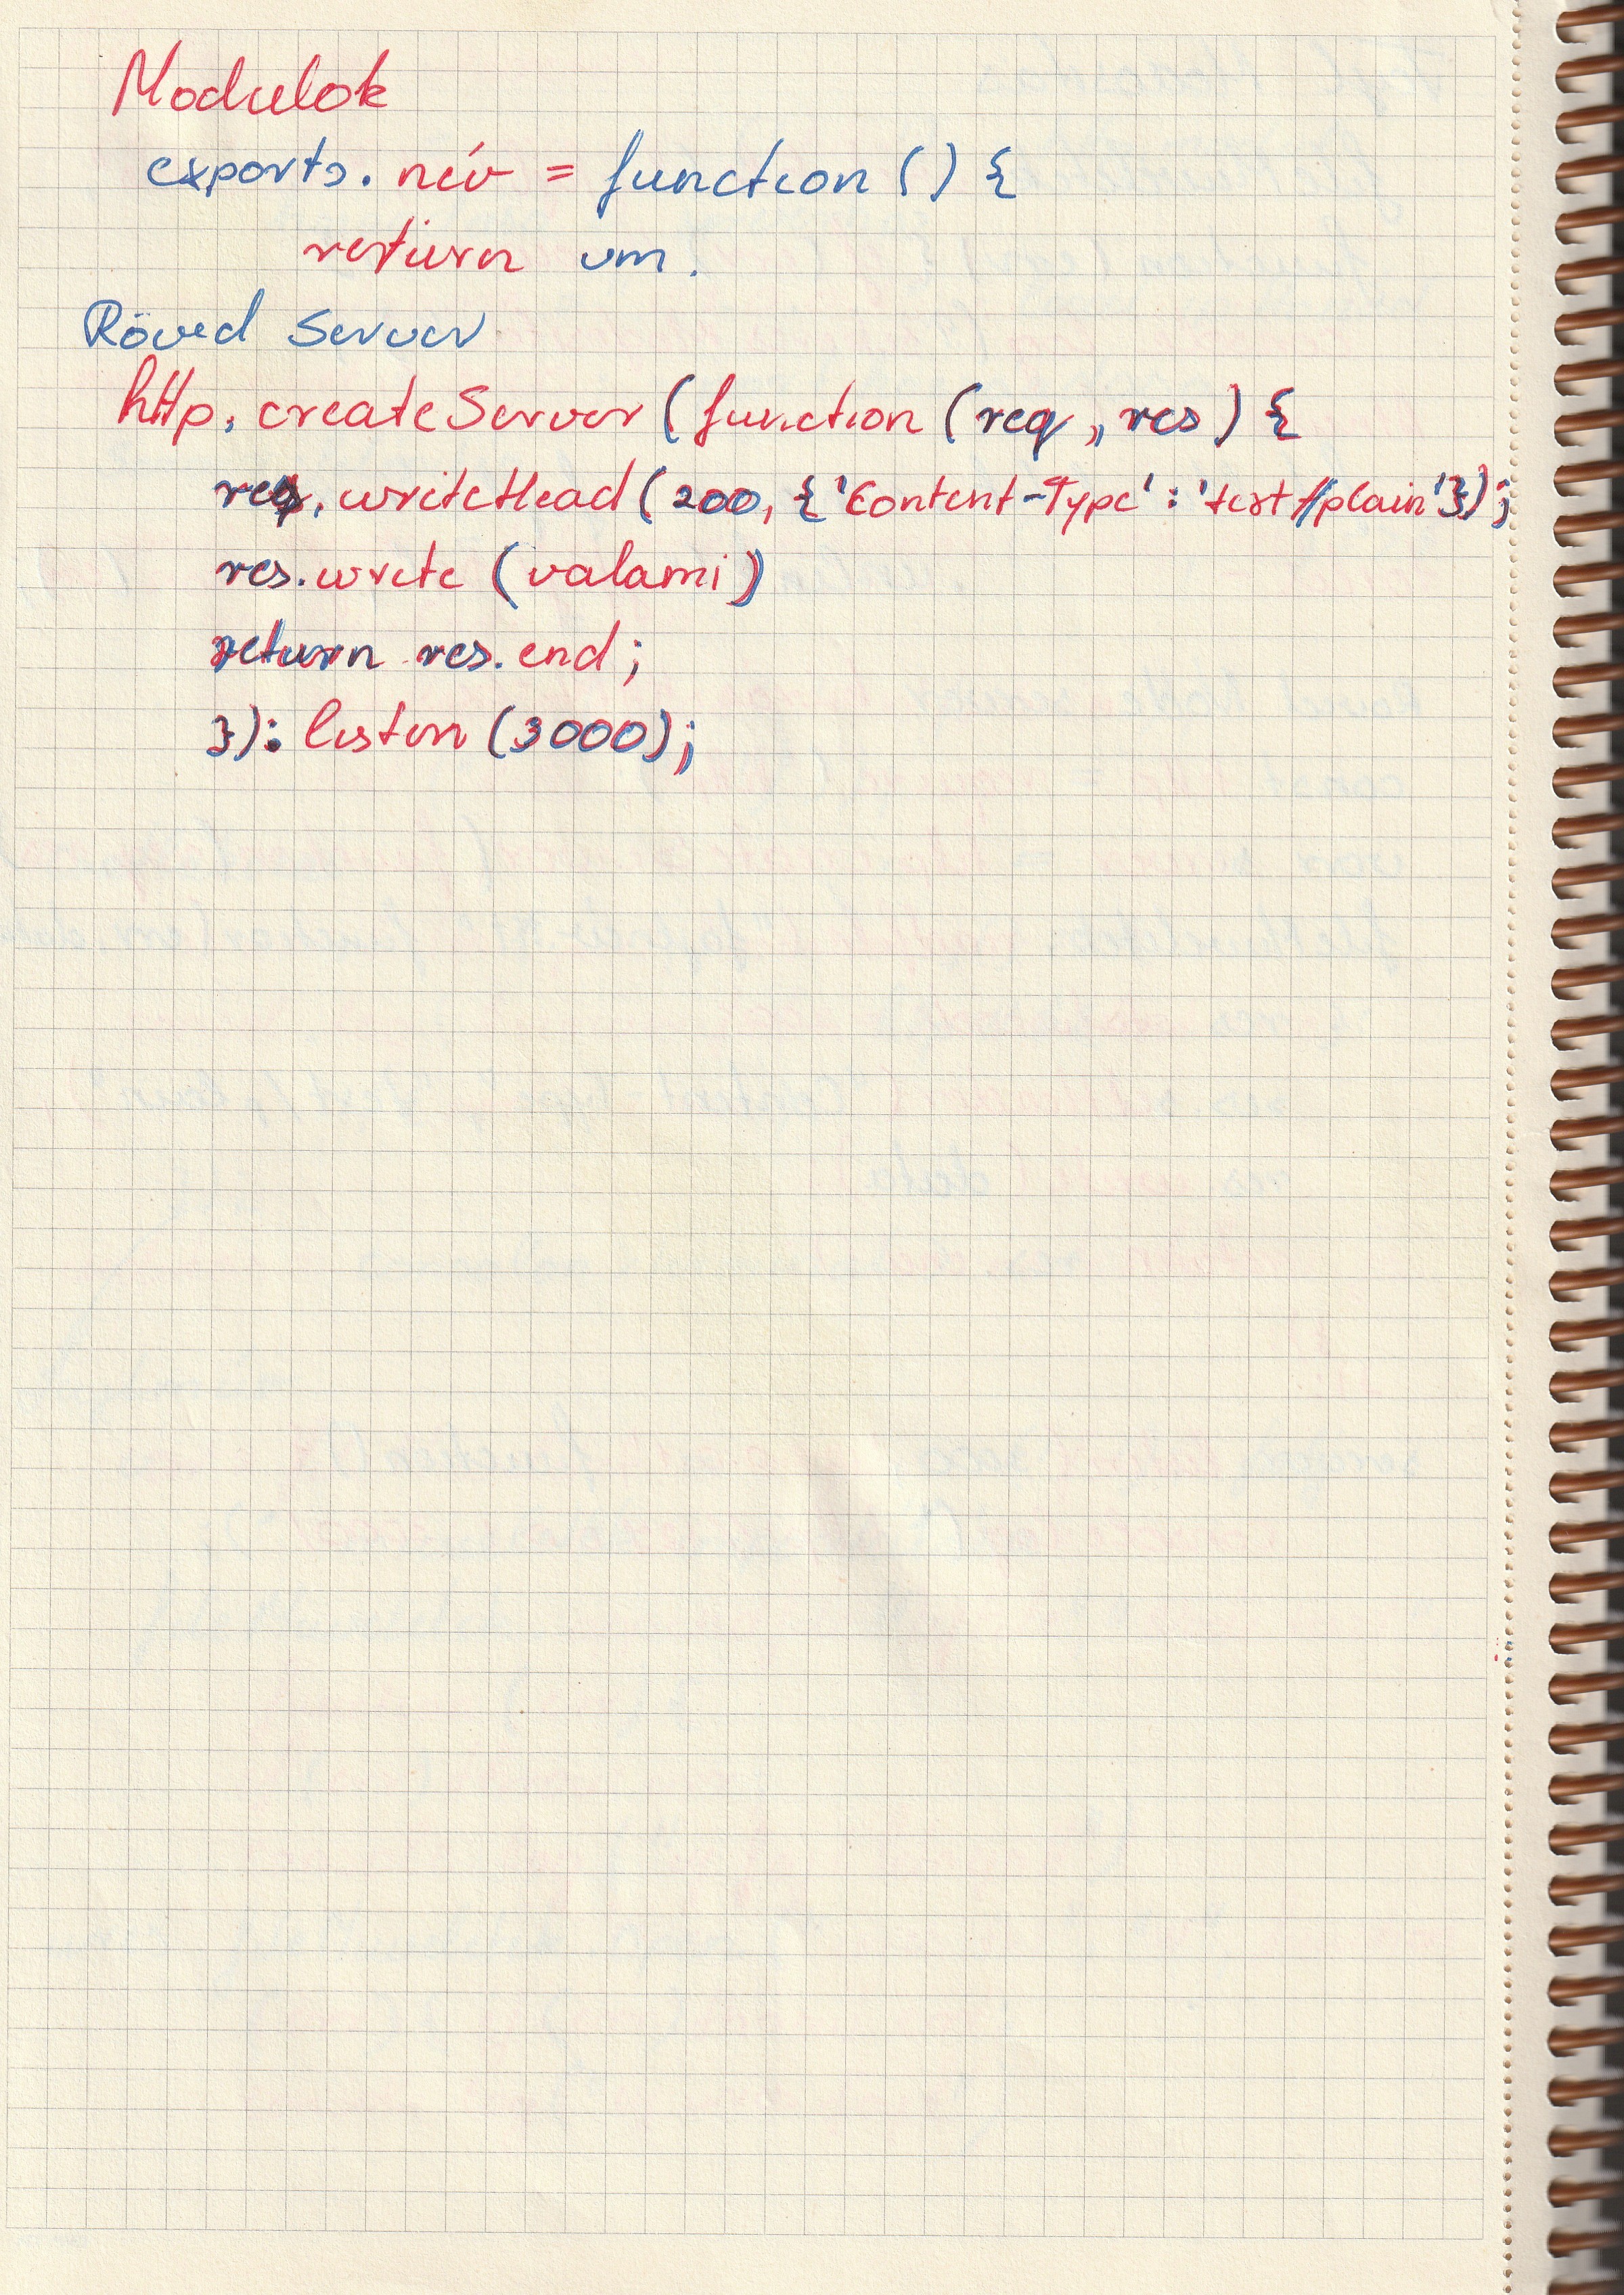 Modulok
exports.név = function () {
return vm.
Röved Server
http.createServer (function (req, res) {
res.writeHead (200, {'Content-Type' : 'text//plain'});
res.write (valami)
return res.end;
}): listen (3000);